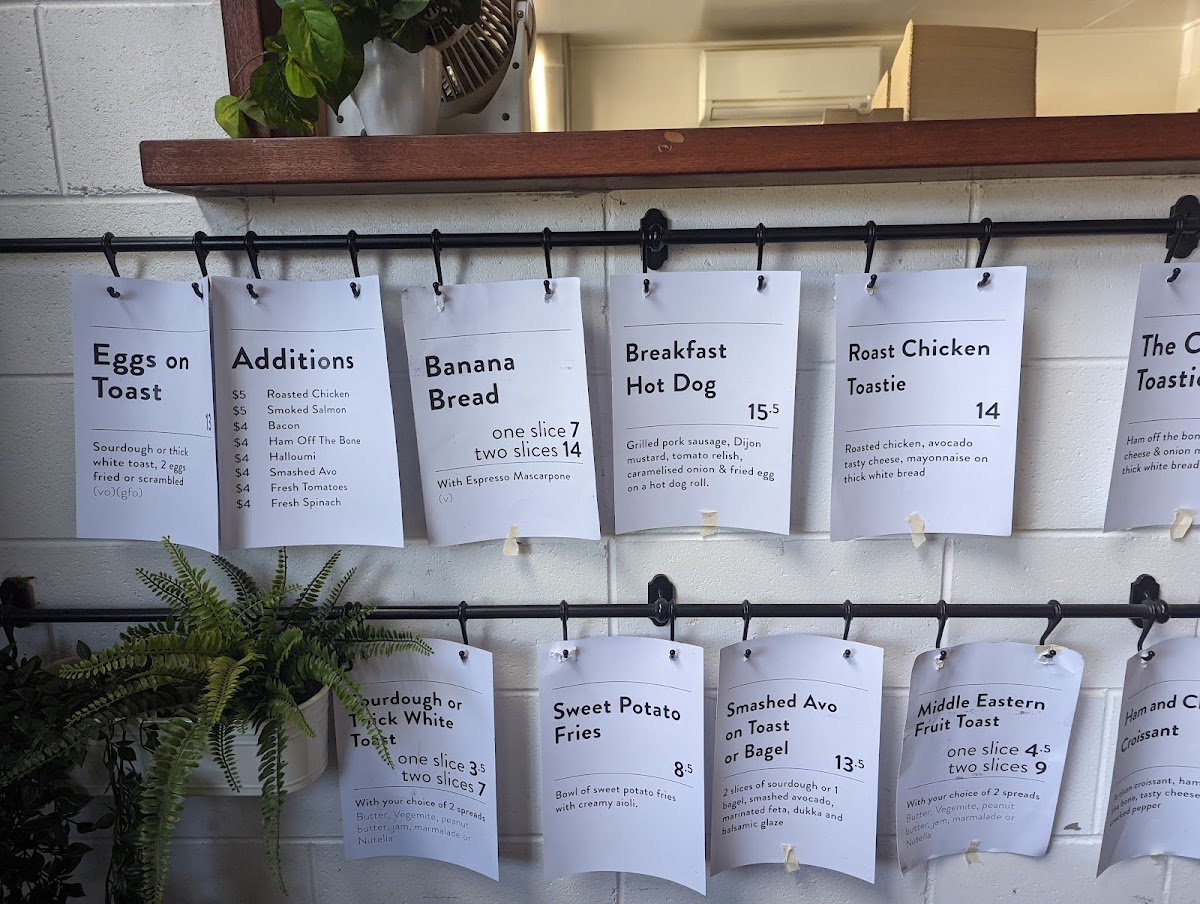 Eggs on
Toast
13
Sourdough or thick
white toast, 2 eggs
fried or scrambled
(vo)(gfo)
Additions
$5 Roasted Chicken
$5 Smoked Salmon
$4 Bacon
$4 Ham Off The Bone
$4 Halloumi
$4 Smashed Avo
$4 Fresh Tomatoes
$4 Fresh Spinach
Banana
Bread
one slice 7
two slices 14
With Espresso Mascarpone
(v)
Breakfast
Hot Dog
15.5
Grilled pork sausage, Dijon
mustard, tomato relish,
caramelised onion & fried egg
on a hot dog roll.
Roast Chicken
Toastie
14
Roasted chicken, avocado
tasty cheese, mayonnaise on
thick white bread
The
Toastie
Ham off the bone
cheese & onion
thick white bread
Sourdough or
Thick White
Toast
one slice 3.5
two slices 7
With your choice of 2 spreads
Butter, Vegemite, peanut
butter, jam, marmalade or
Nutella
Sweet Potato
Fries
8.5
Bowl of sweet potato fries
with creamy aioli.
Smashed Avo
on Toast
or Bagel
13.5
2 slices of sourdough or 1
bagel, smashed avocado,
marinated feta, dukka and
balsamic glaze
Middle Eastern
Fruit Toast
one slice 4.5
two slices 9
With your choice of 2 spreads
Butter, Vegemite, peanut
butter, jam, marmalade or
Nutella
Ham and
Croissant
croissant, ham
bone, tasty cheese
cracked pepper